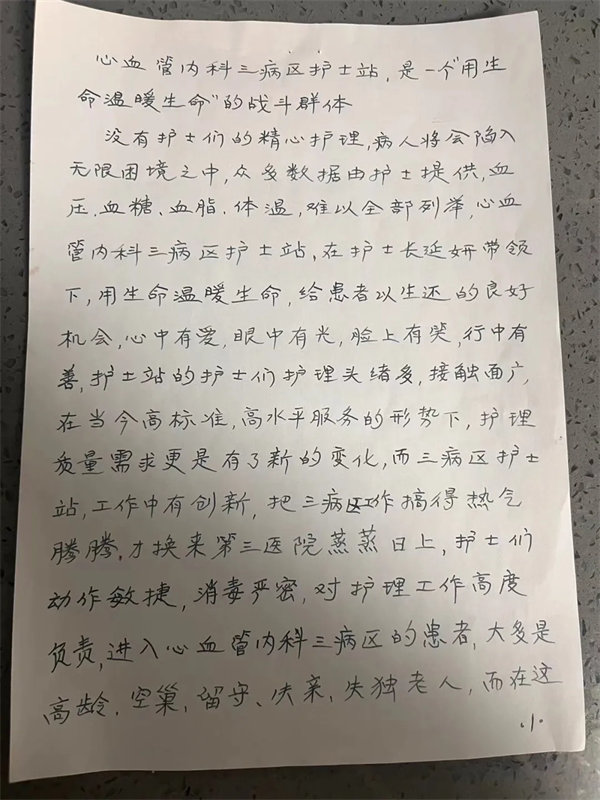 心血管内科三病区护士站，是一个“用生
命温暖生命”的战斗群体
没有护士们的精心护理，病人将会陷入
无限困境之中，众多数据由护士提供，血
压、血糖、血脂、体温，难以全部列举，心血
管内科三病区护士站，在护士长延妍带领
下，用生命温暖生命，给患者以生还的良好
机会，心中有爱，眼中有光，脸上有笑，行中有
善，护士站的护士们护理头绪多，接触面广，
在当今高标准，高水平服务的形势下，护理
质量需求更是有了新的变化，而三病区护士
站，工作中有创新，把三病区工作搞得热气
腾腾，才换来第三医院蒸蒸日上，护士们
动作敏捷，消毒严密，对护理工作高度
负责，进入心血管内科三病区的患者，大多是
高龄、空巢，留守、失亲，失独老人，而在这
.1.